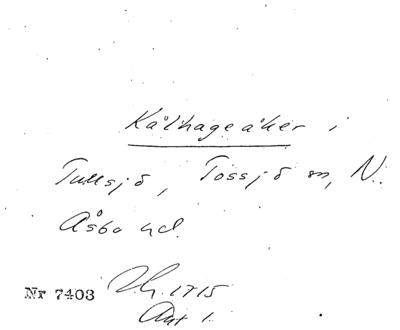 Kålhageåker i
Tullsjö, Tossjö sn, N.
Åsbo hd.
Nr 7403
1715
Akt 1.